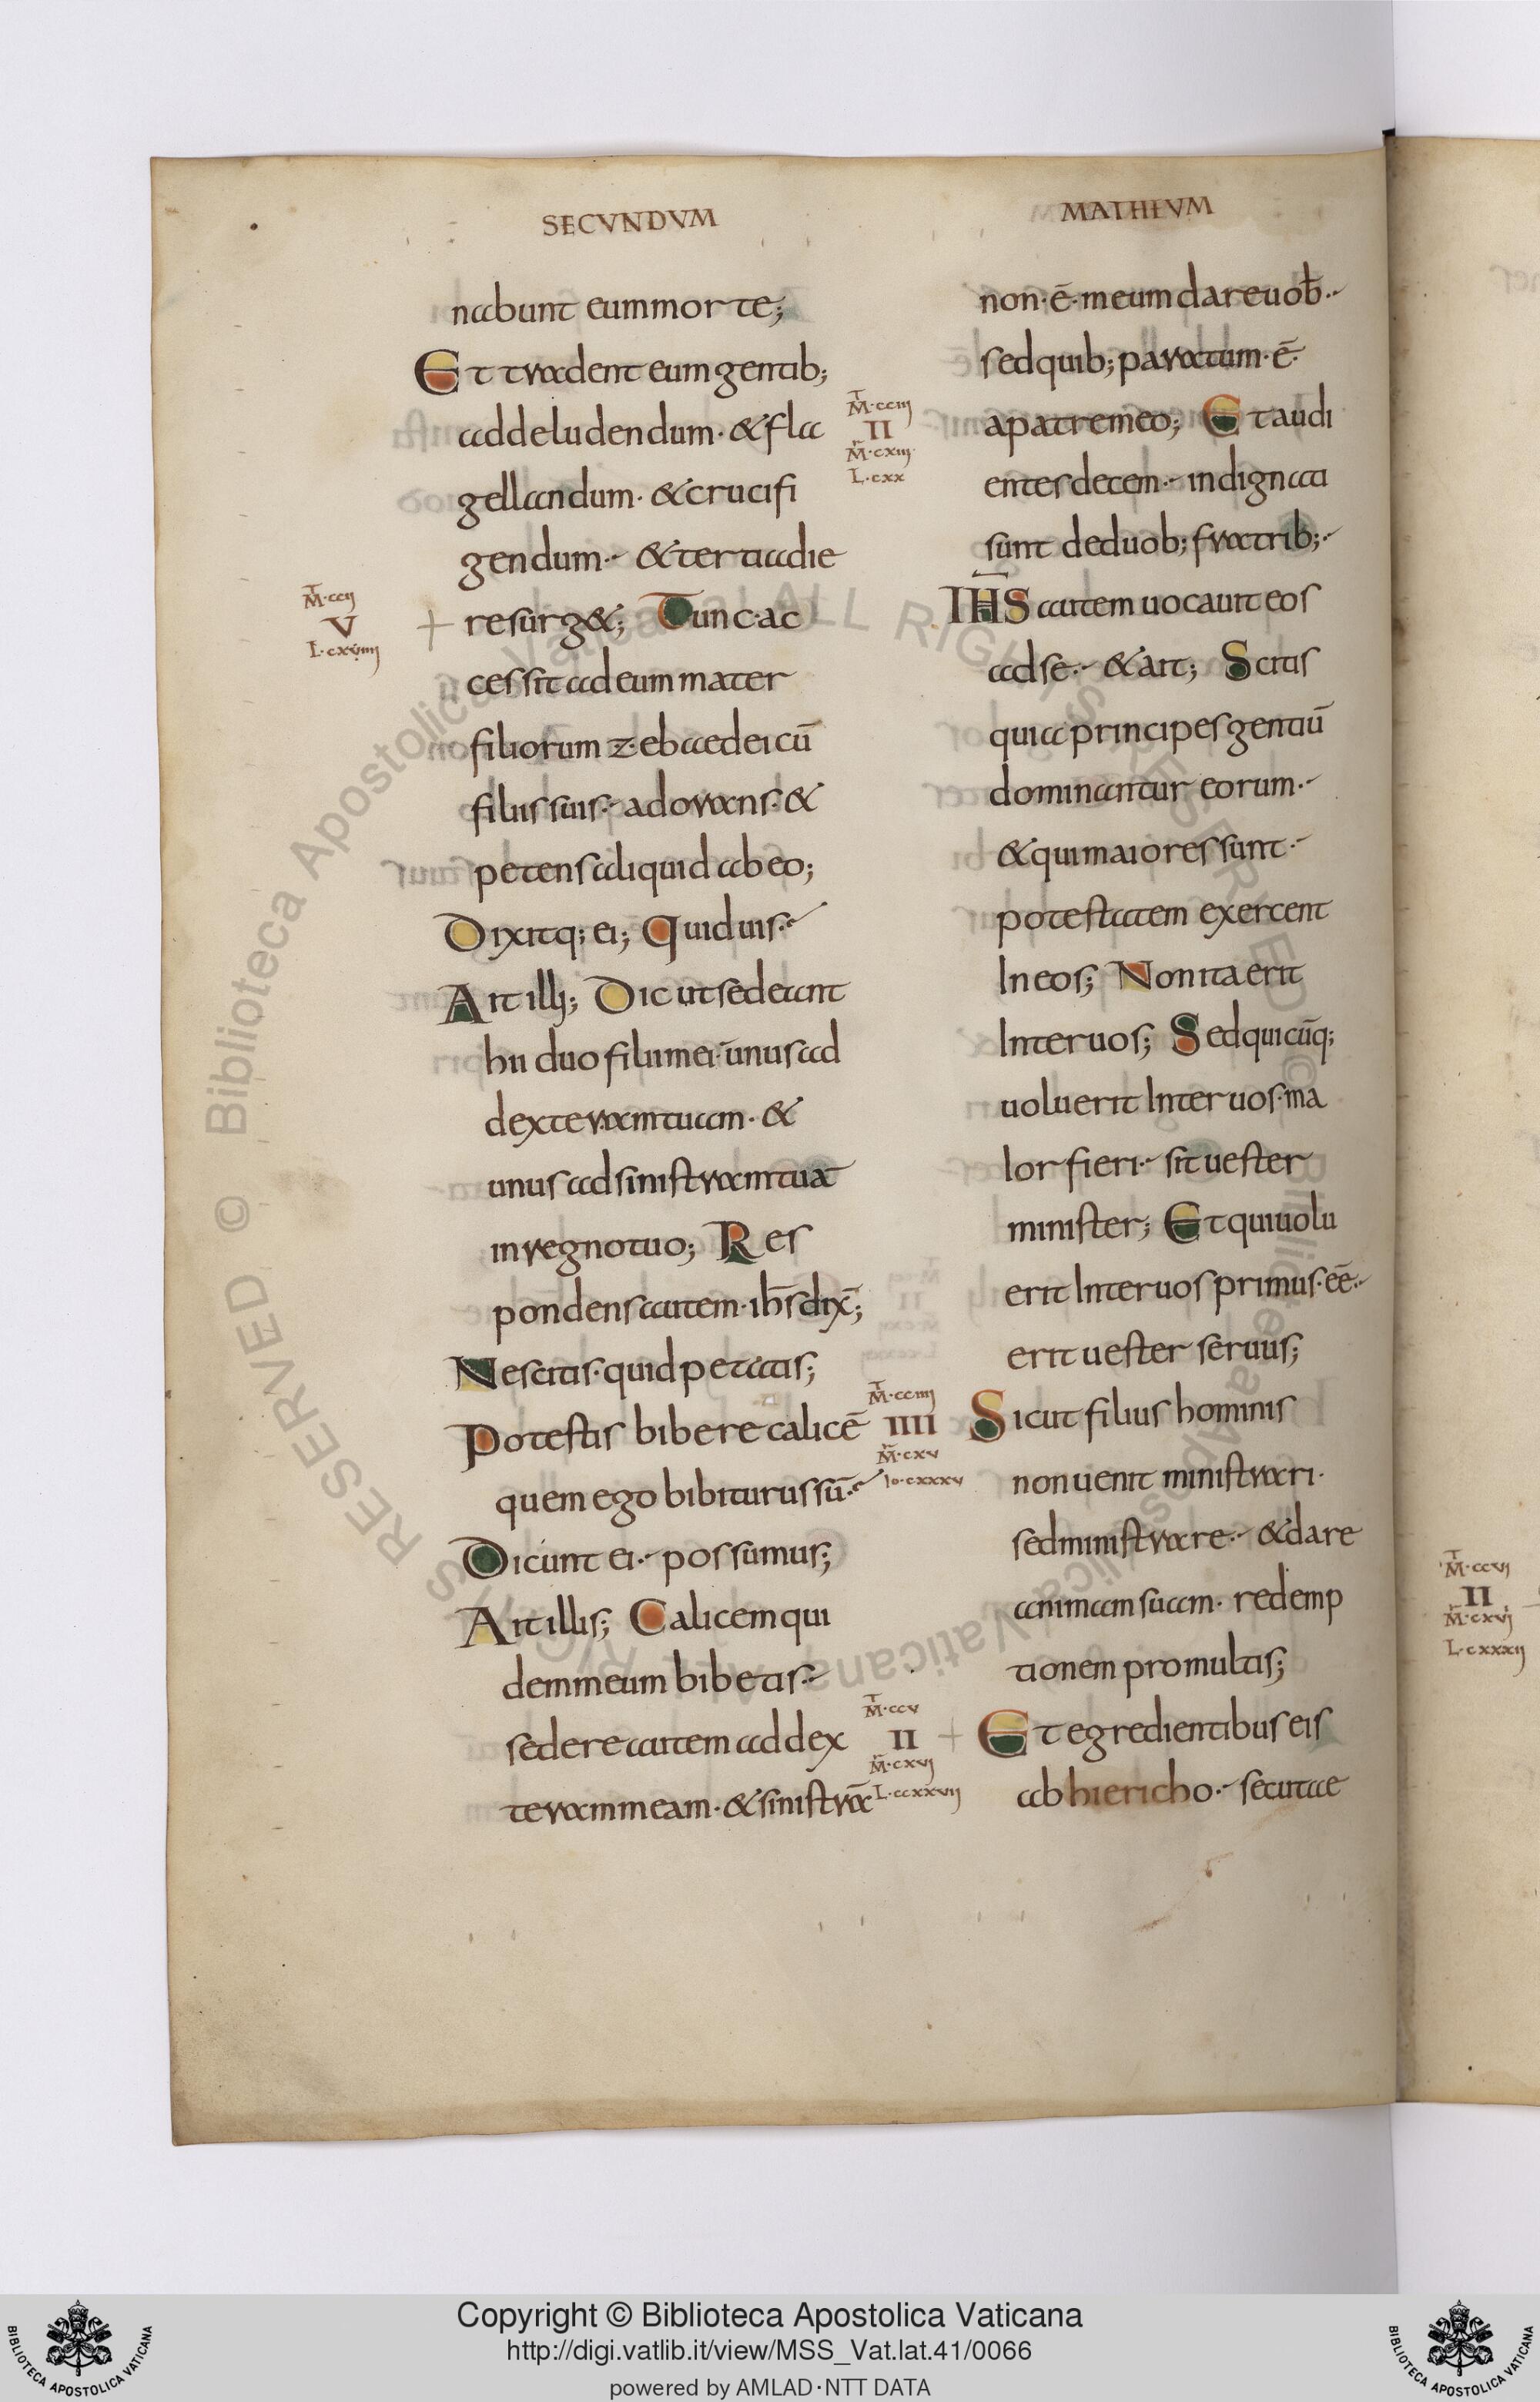 SECVNDVM
MATHEVM
nabunt eum morte;
Et tradent eum gentib;
ad deludendum · & fla
gellandum · & crucifi
gendum · & tertia die
resurg&; Tunc · ac
cessit ad eum mater
filiorum zebedaei cū
filiis suis · adorans · &
petens aliquid ab eo;
Dixitq; ei; Quid uis ·
Ait illi; Dic ut sedeant
hii duo filii mei · unus ad
dexteram tuam · &
unus ad sinistram tuā
in regno tuo; Res
pondens autem · ih̄s dix̄;
Nescitis · quid petatis;
Potestis bibere calicē
quem ego bibiturus sū ·
Dicunt ei · possumus;
Ait illis; Calicem qui
dem meum bibetis ·
sedere autem ad dex
teram meam · & sinistrā
T M · ccii
V
L · cxviiii
T M · cciii
II
M̄ · cxiiii
L · cxx
T M · cciiii
IIII
M̄ · cxv
Io · cxxxv
T M · ccv
II
M̄ · cxvi
L · ccxxvii
non · ē · meum dare uob̄ ·
sed quib; paratum · ē ·
a patre meo; Et audi
entes decem · indignati
sunt de duob; fratrib; ·
IHS autem uocauit eos
ad se · & ait; Scitis
quia principes gentiū
dominantur eorum ·
& qui maiores sunt ·
potestatem exercent
In eos; Non ita erit
Inter uos; Sed quicūq;
uoluerit Inter uos · ma
Ior fieri · sit uester
minister; Et qui uolu
erit Inter uos primus · eē ·
erit uester seruus;
Sicut filius hominis
non uenit ministrari ·
sed ministrare · & dare
animam suam · redemp
tionem pro multis;
Et egredientibus eis
ab hiericho · secutae
T M · ccvi
II
M̄ · cxvi
L · cxxxii
© Biblioteca Apostolica Vaticana ALL RIGHTS RESERVED
Copyright © Biblioteca Apostolica Vaticana
http://digi.vatlib.it/view/MSS_Vat.lat.41/0066
powered by AMLAD·NTT DATA
BIBLIOTECA APOSTOLICA VATICANA
BIBLIOTECA APOSTOLICA VATICANA